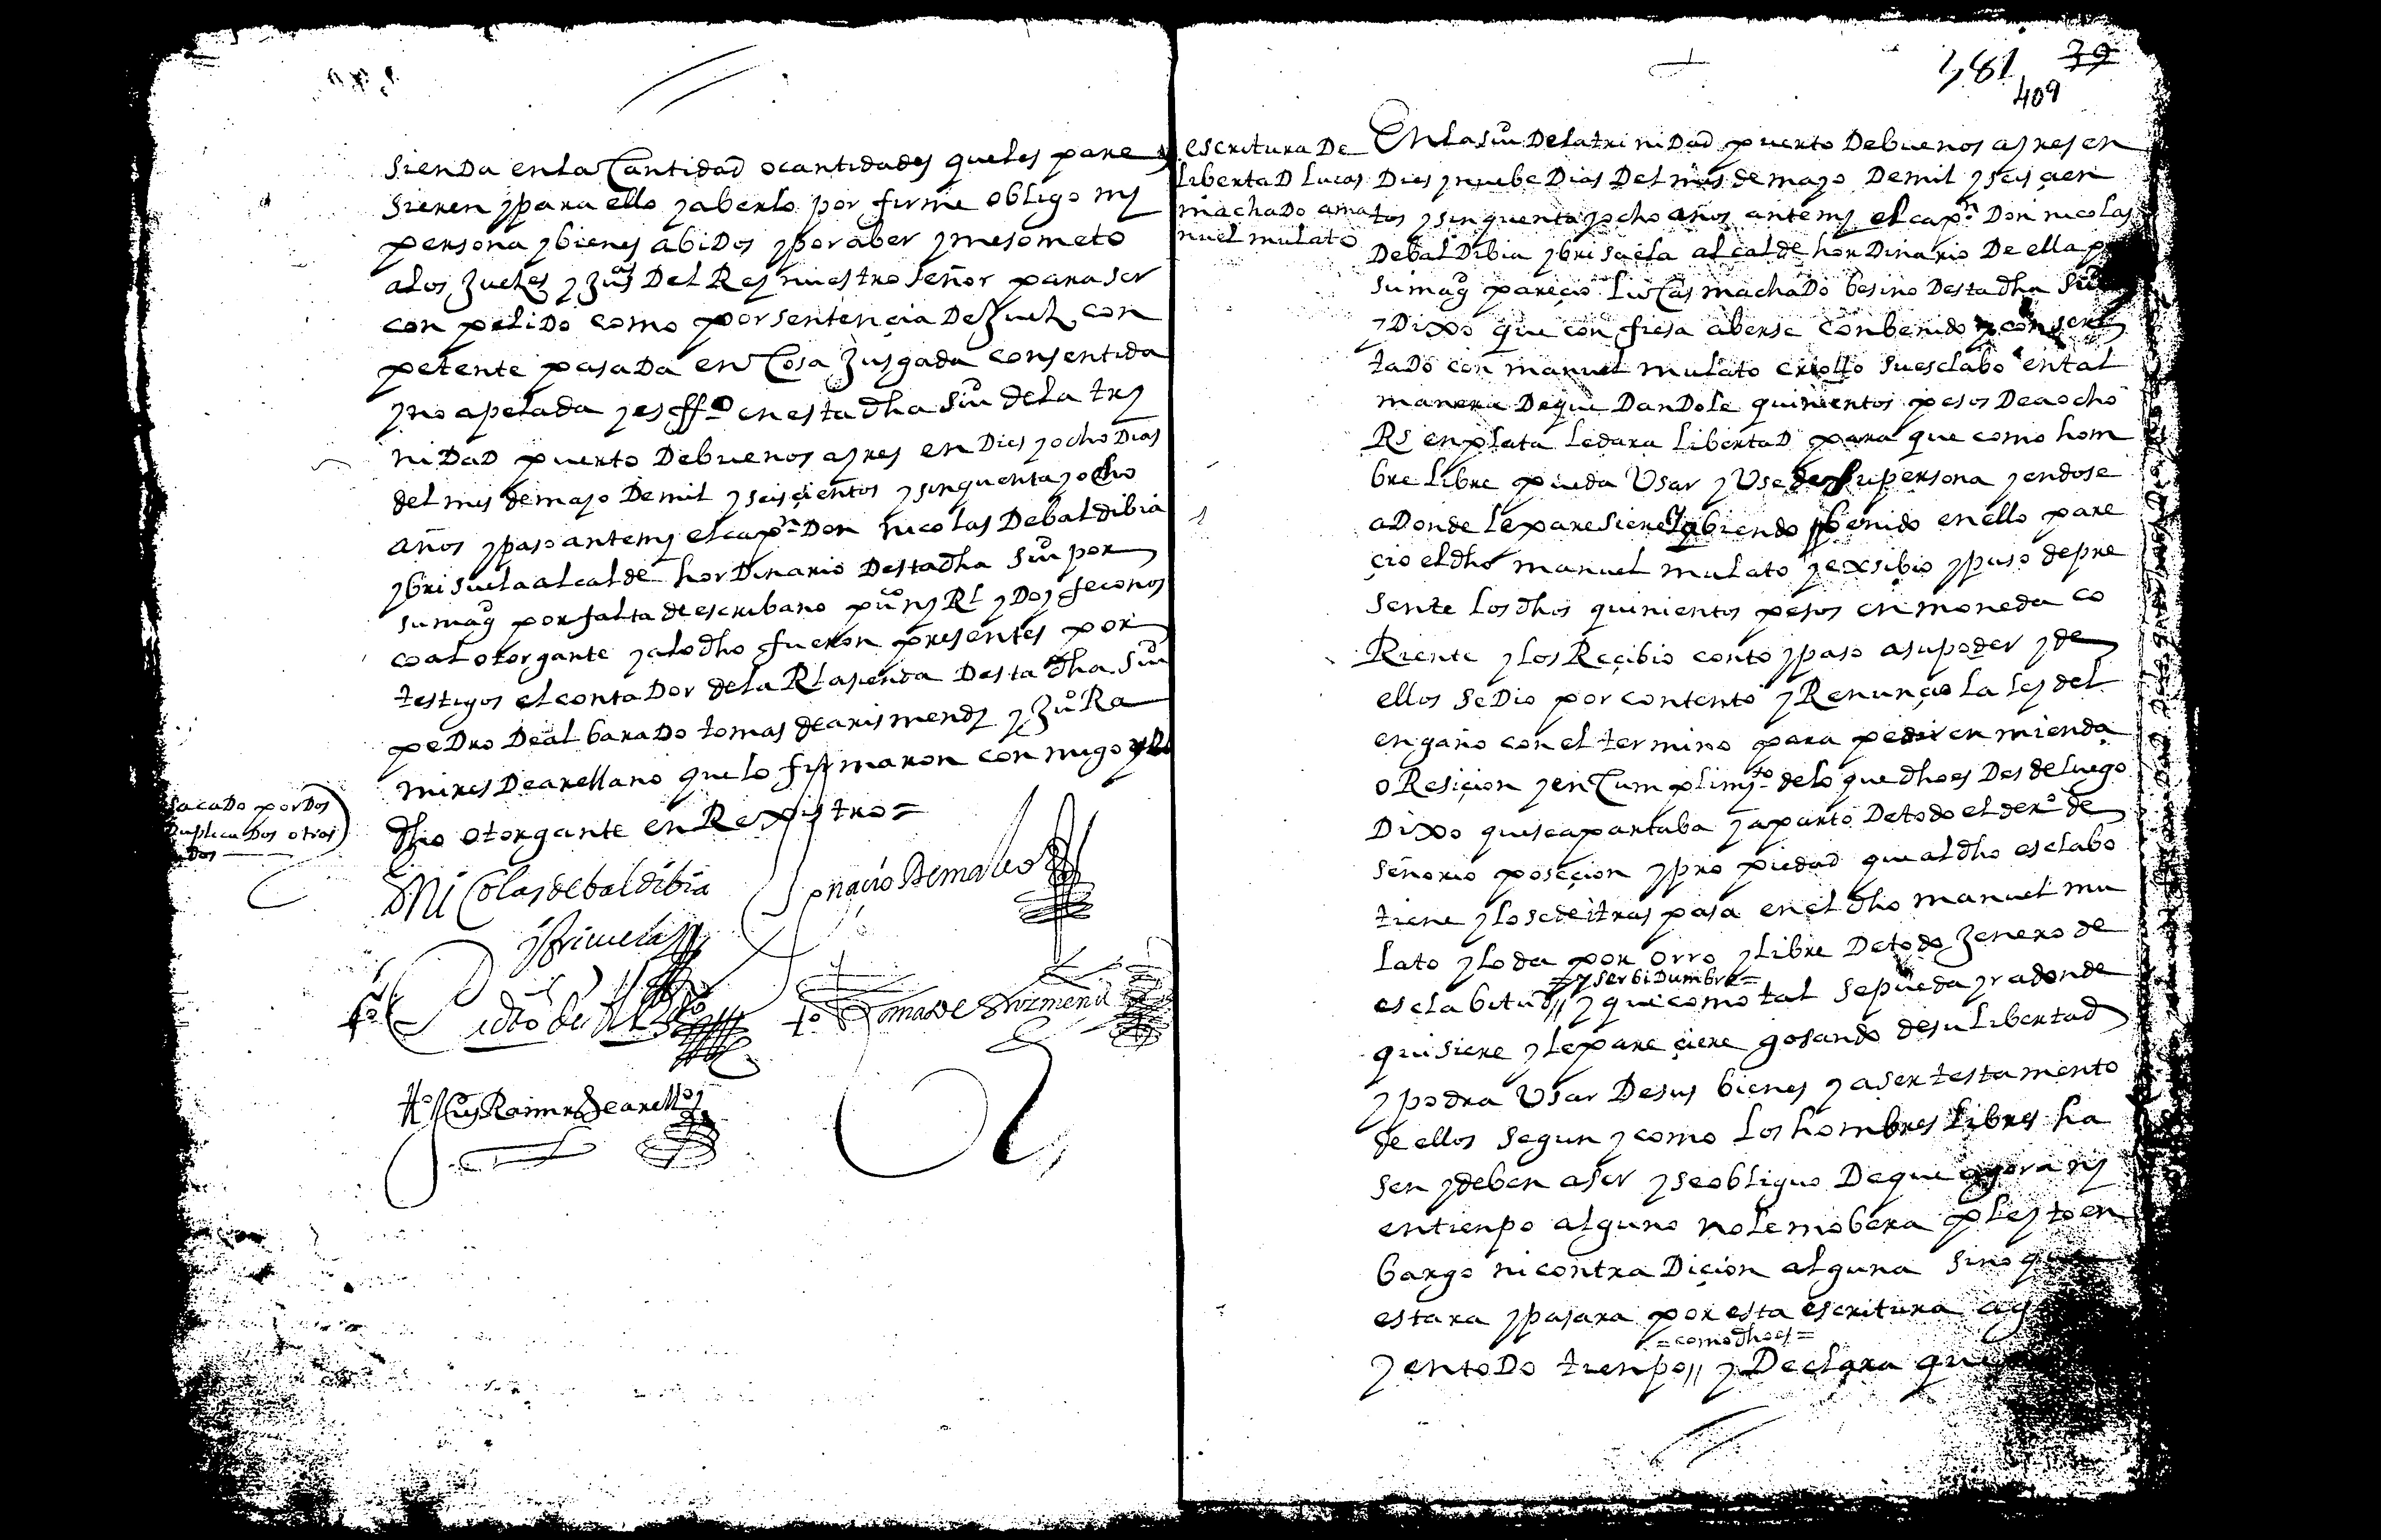 sienda en la Cantidad o cantidades que les pare
sieren y para ello y aberlo por firme obligo my
persona y bienes abidos y por aber y me someto
a los Jueses y Jus.as Del Rey nuestro señor para ser
conpelido como por sentençia De Juez con
petente pasada en Cosa Jusgada consentida
y no apelada y es ff.o en esta dha Siu de la try
nidad puerto De buenos ayres en Dies y ocho Dias
del mes de mayo De mil y seisçientos y sinquenta y ocho
años y paso ante my el cap.n Don nicolas De baldibia
y brisuela alcalde hordinario Desta dha Siu por
su mag por falta de escribano pu.co ny Rl y Doy fe conos
co al otorgante y a lo dho fueron presentes por
testigos el contador de la Rl asienda Desta dha Siu
pedro De albarado tomas de arismendy y Ju.o Ra
mires De arellano que lo firmaron con migo y el
dho otorgante en Rexistro =
sacado por Dos
Duplicados otros
dos
D Nicolas de baldibia
y briçuela
Ygnacio De
t.o Pedro de Alb.do
t.o Tomas de Arizmendi
t.o Ju.o Ramirez de arellano
381 39
409
escritura De
libertad lucas
machado a ma
nuel mulato
En la Siu De la trinidad puerto De buenos ayres en
Dies y nuebe Dias Del mes de mayo De mil y seisçien
tos y sinquenta y ocho años ante my el cap.n Don nicolas
De baldibia y brisuela alcalde hordinario De ella p
su mag pareçio lucas machado besino Desta dha Siu
y Dixo que confiesa aberse conbenido y conser
tado con manuel mulato criollo su esclabo en tal
manera De que Dandole quinientos pesos De a ocho
Rs en plata le dara libertad para que como hom
bre libre pueda Usar y Use de su persona yendose
a Donde le paresiere y abiendo benido en ello pare
çio el dho manuel mulato y exsibio y puso de pre
sente los dhos quinientos pesos en moneda co
Riente y los Reçibio conto y paso a su poder y de
ellos se Dio por contento y Renunçio la ley del
engaño con el termino para pedir enmienda
o Resiçion y en Cumplimy.to de lo que dho es Desde luego
Dixo que se apartaba y aparto De todo el der.o de
señorio poseçion y propiedad que al dho esclabo
tiene y lo sede i traspasa en el dho manuel mu
lato y lo da por orro y libre De todo Jenero de
= y serbidumbre =
esclabitud // y que como tal se pueda yr a donde
quisiere y le pareçiere gosando de su libertad
y podra Usar De sus bienes y aser testamento
de ellos segun y como los hombres libres ha
sen y deben aser y se obliguo De que agora ny
en tienpo alguno no le mobera pleyto en
bargo ni contradiçion alguna sino que
estara y pasara por esta escritura ag
= como dho es =
y en todo tienpo // y Declara que